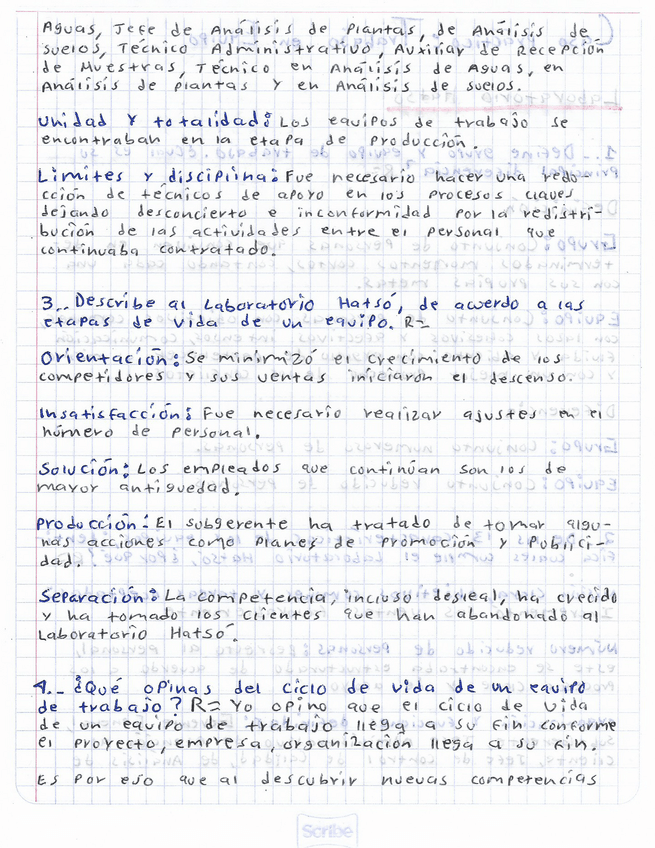 Aguas, Jefe de Análisis de Plantas, de Análisis de
suelos, Técnico Administrativo, Auxiliar de Recepción
de Muestras, Técnico en Análisis de Aguas, en
Análisis de plantas y en Análisis de suelos.
Unidad y totalidad: Los equipos de trabajo se
encontraban en la etapa de Producción.
Limites y disciplina: Fue necesario hacer una redu-
cción de técnicos de apoyo en los procesos claves
dejando desconcierto e inconformidad por la redistri-
bución de las actividades entre el personal que
continuaba contratado.
3.- Describe al Laboratorio Hatsó, de acuerdo a las
etapas de vida de un equipo. R=
Orientación: Se minimizó el crecimiento de los
competidores y sus ventas iniciaron el descenso.
Insatisfacción: Fue necesario realizar ajustes en el
número de personal.
Solución: Los empleados que continúan son los de
mayor antiguedad.
Producción: El subgerente ha tratado de tomar algu-
nas acciones como planes de promoción y Publici-
dad.
Separación: La competencia, incluso desleal, ha crecido
y ha tomado los clientes que han abandonado al
Laboratorio Hatsó.
4.- ¿Qué opinas del ciclo de vida de un equipo
de trabajo? R= Yo opino que el ciclo de vida
de un equipo de trabajo llega a su fin conforme
el proyecto, empresa, organización llega a su fin.
Es por eso que al descubrir nuevas competencias
Scribe